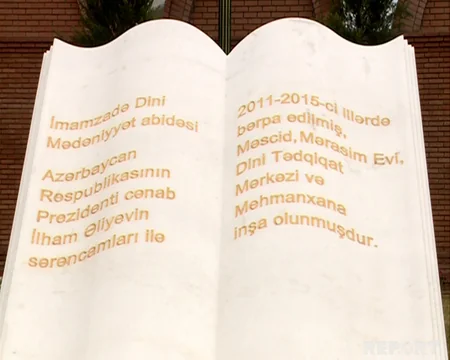 İmamzadə Dini
Mədəniyyət abidəsi
Azərbaycan
Respublikasının
Prezidenti cənab
İlham Əliyevin
sərəncamları ilə
2011-2015-ci illərdə
bərpa edilmiş,
Məscid, Mərasim Evi,
Dini Tədqiqat
Mərkəzi və
Mehmanxana
inşa olunmuşdur.
REPORT